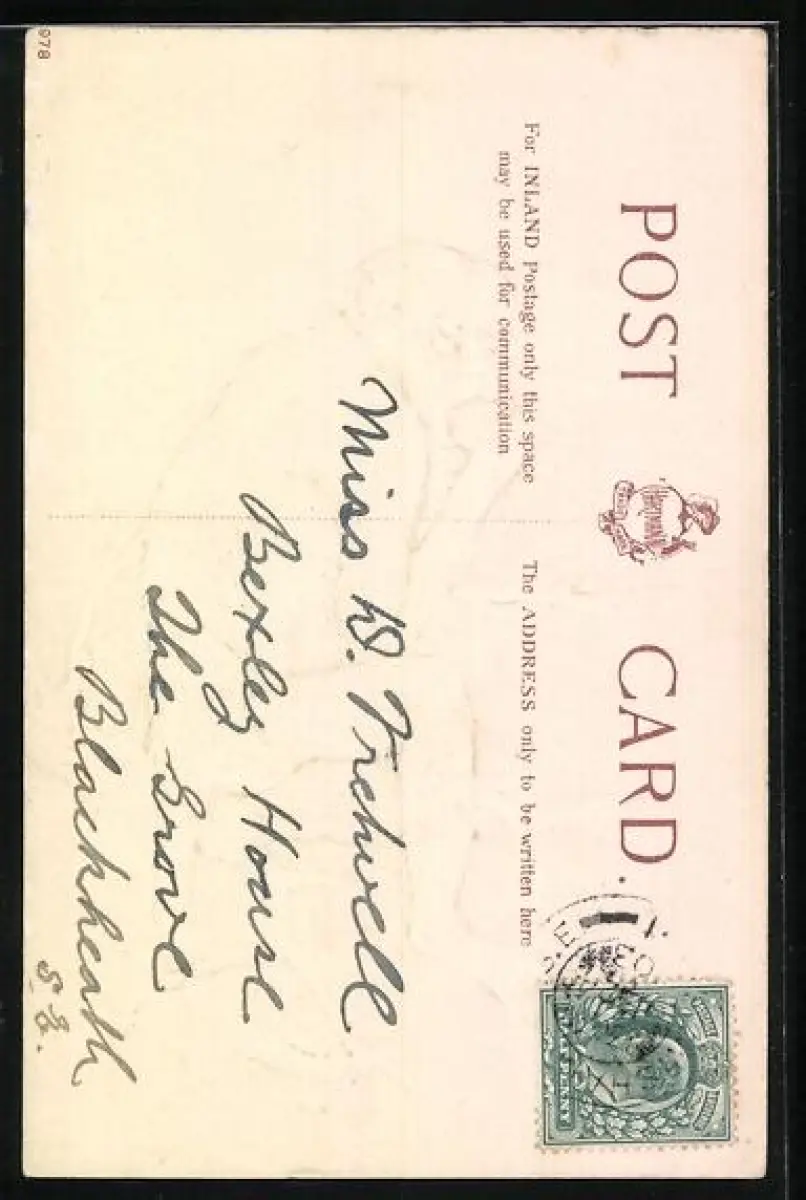 978
POST CARD.
For INLAND Postage only this space
may be used for communication
The ADDRESS only to be written here
HALFPENNY
S.E
Miss D. Frehwell
Bexley House
The Grove
Blackheath
S.E.